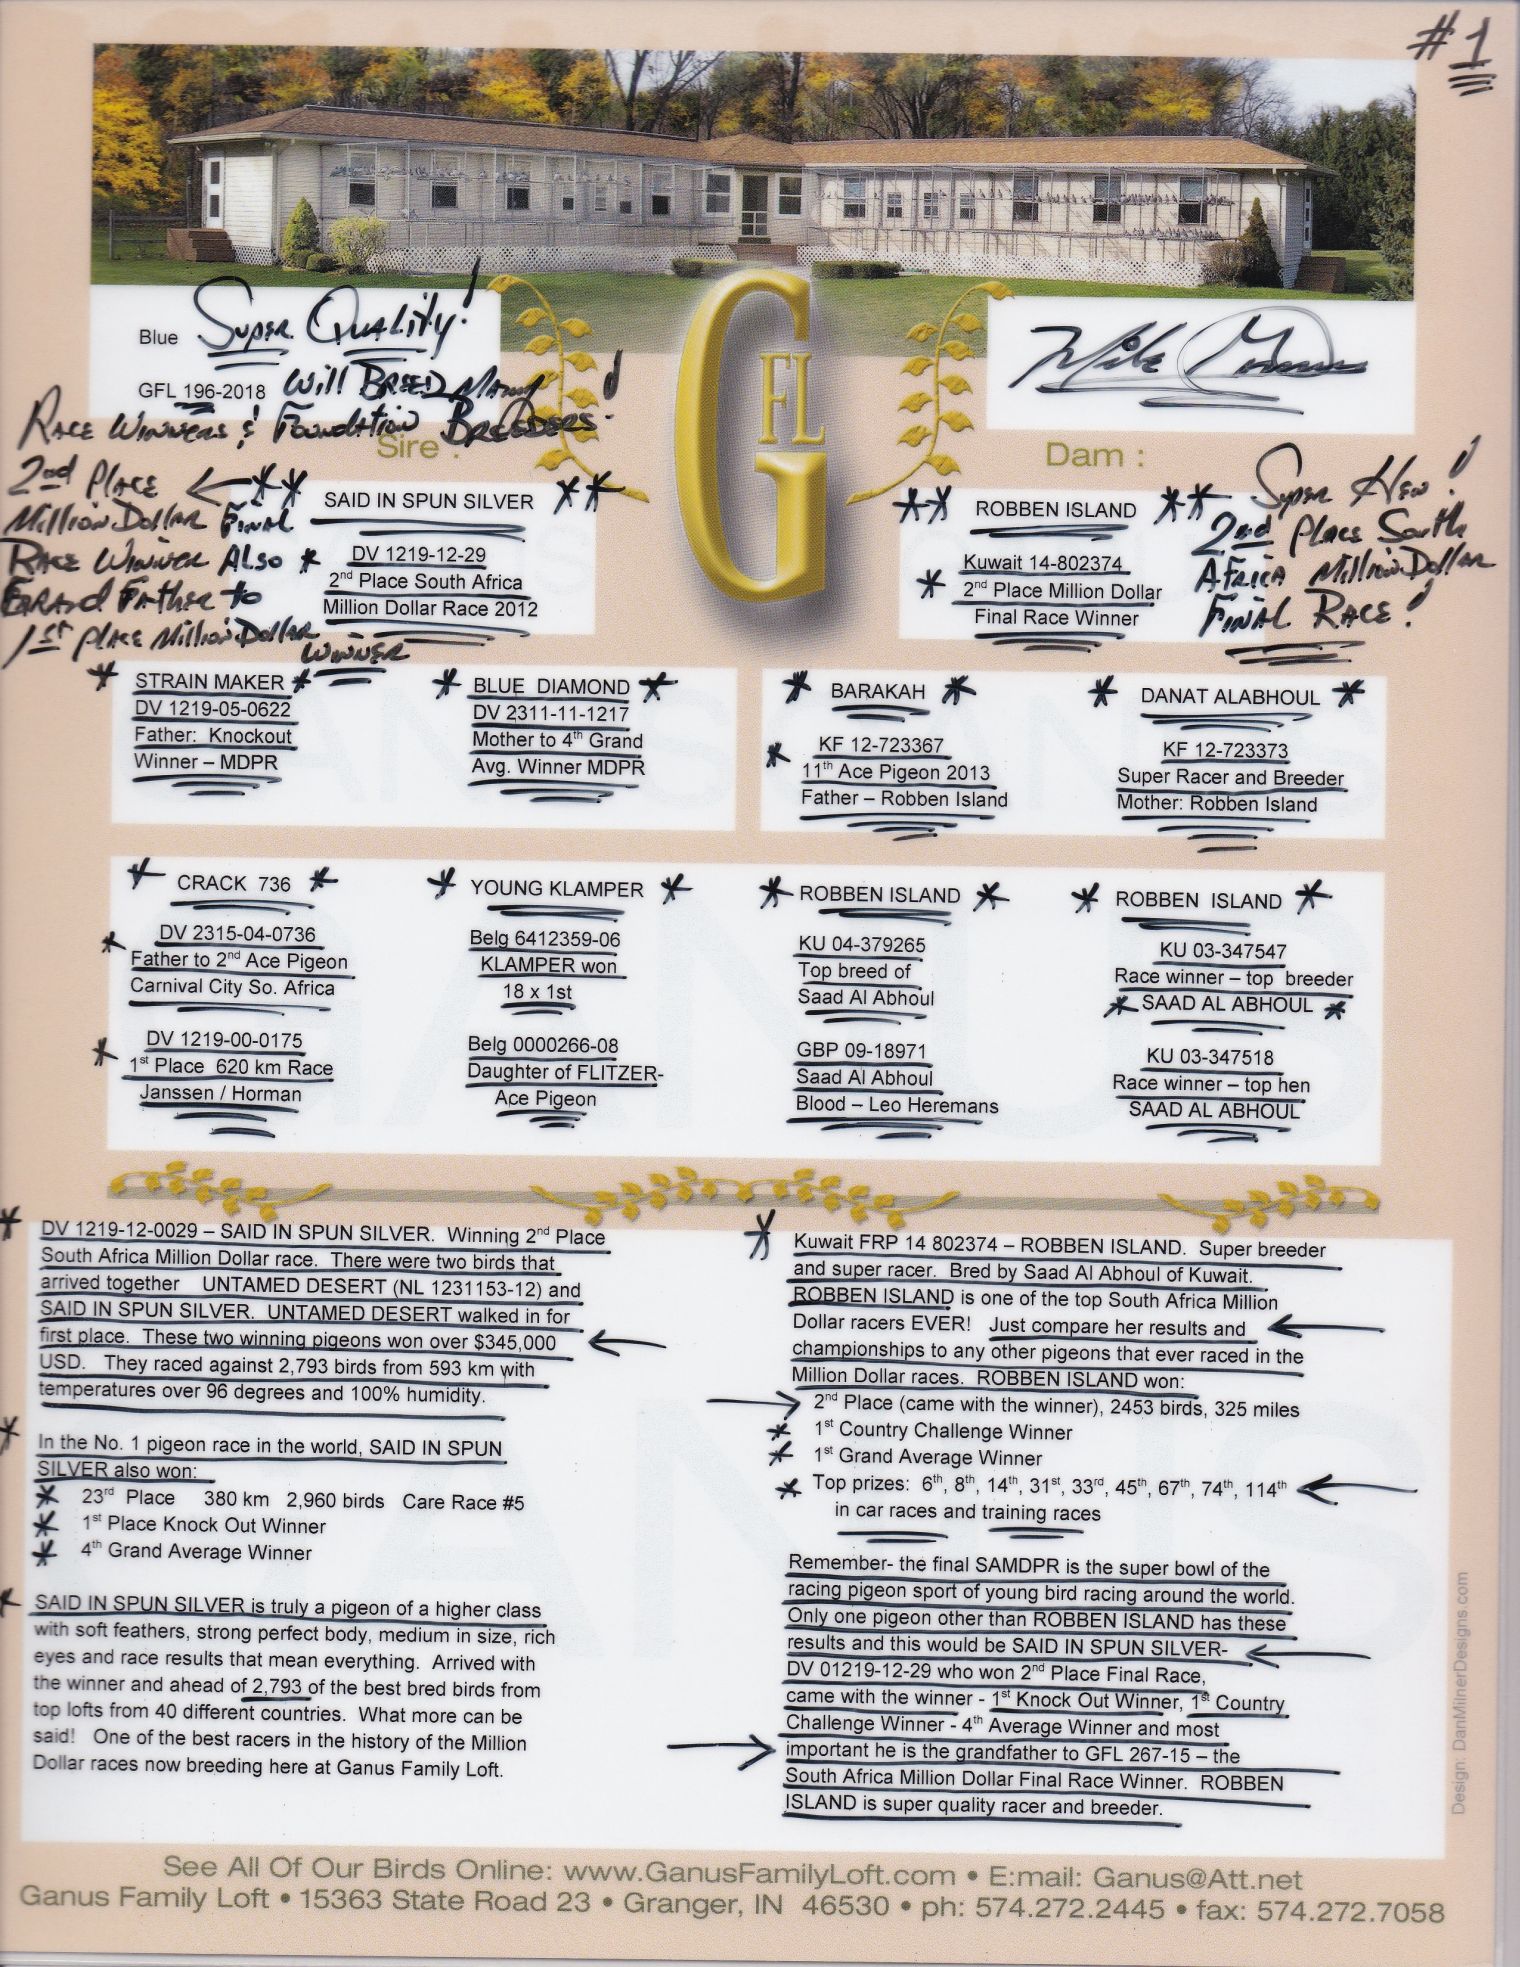 #1
Blue
Super Quality!
GFL 196-2018
Will Breed Many
Race Winners & Foundation Breeders!
Sire :
2nd Place
Million Dollar Final
Race Winner Also
Grand Father to
1st Place Million Dollar
Winner
SAID IN SPUN SILVER
DV 1219-12-29
2nd Place South Africa
Million Dollar Race 2012
GFL
Mike Ganus
Dam :
ROBBEN ISLAND
Kuwait 14-802374
2nd Place Million Dollar
Final Race Winner
Super Hen!
2nd Place South
Africa Million Dollar
Final Race!
STRAIN MAKER
DV 1219-05-0622
Father: Knockout
Winner – MDPR
BLUE DIAMOND
DV 2311-11-1217
Mother to 4th Grand
Avg. Winner MDPR
BARAKAH
KF 12-723367
11th Ace Pigeon 2013
Father – Robben Island
DANAT ALABHOUL
KF 12-723373
Super Racer and Breeder
Mother: Robben Island
CRACK 736
DV 2315-04-0736
Father to 2nd Ace Pigeon
Carnival City So. Africa
DV 1219-00-0175
1st Place 620 km Race
Janssen / Horman
YOUNG KLAMPER
Belg 6412359-06
KLAMPER won
18 x 1st
Belg 0000266-08
Daughter of FLITZER-
Ace Pigeon
ROBBEN ISLAND
KU 04-379265
Top breed of
Saad Al Abhoul
GBP 09-18971
Saad Al Abhoul
Blood – Leo Heremans
ROBBEN ISLAND
KU 03-347547
Race winner – top breeder
SAAD AL ABHOUL
KU 03-347518
Race winner – top hen
SAAD AL ABHOUL
DV 1219-12-0029 – SAID IN SPUN SILVER. Winning 2nd Place
South Africa Million Dollar race. There were two birds that
arrived together UNTAMED DESERT (NL 1231153-12) and
SAID IN SPUN SILVER. UNTAMED DESERT walked in for
first place. These two winning pigeons won over $345,000
USD. They raced against 2,793 birds from 593 km with
temperatures over 96 degrees and 100% humidity.
In the No. 1 pigeon race in the world, SAID IN SPUN
SILVER also won:
23rd Place 380 km 2,960 birds Care Race #5
1st Place Knock Out Winner
4th Grand Average Winner
SAID IN SPUN SILVER is truly a pigeon of a higher class
with soft feathers, strong perfect body, medium in size, rich
eyes and race results that mean everything. Arrived with
the winner and ahead of 2,793 of the best bred birds from
top lofts from 40 different countries. What more can be
said! One of the best racers in the history of the Million
Dollar races now breeding here at Ganus Family Loft.
Kuwait FRP 14 802374 – ROBBEN ISLAND. Super breeder
and super racer. Bred by Saad Al Abhoul of Kuwait.
ROBBEN ISLAND is one of the top South Africa Million
Dollar racers EVER! Just compare her results and
championships to any other pigeons that ever raced in the
Million Dollar races. ROBBEN ISLAND won:
2nd Place (came with the winner), 2453 birds, 325 miles
1st Country Challenge Winner
1st Grand Average Winner
Top prizes: 6th, 8th, 14th, 31st, 33rd, 45th, 67th, 74th, 114th
in car races and training races
Remember- the final SAMDPR is the super bowl of the
racing pigeon sport of young bird racing around the world.
Only one pigeon other than ROBBEN ISLAND has these
results and this would be SAID IN SPUN SILVER-
DV 01219-12-29 who won 2nd Place Final Race,
came with the winner - 1st Knock Out Winner, 1st Country
Challenge Winner - 4th Average Winner and most
important he is the grandfather to GFL 267-15 – the
South Africa Million Dollar Final Race Winner. ROBBEN
ISLAND is super quality racer and breeder.
Design: DanMilnerDesigns.com
See All Of Our Birds Online: www.GanusFamilyLoft.com • E:mail: Ganus@Att.net
Ganus Family Loft • 15363 State Road 23 • Granger, IN 46530 • ph: 574.272.2445 • fax: 574.272.7058